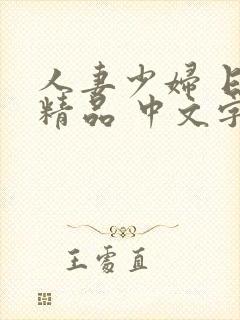 人妻少婦
精品 中文字
王雪直